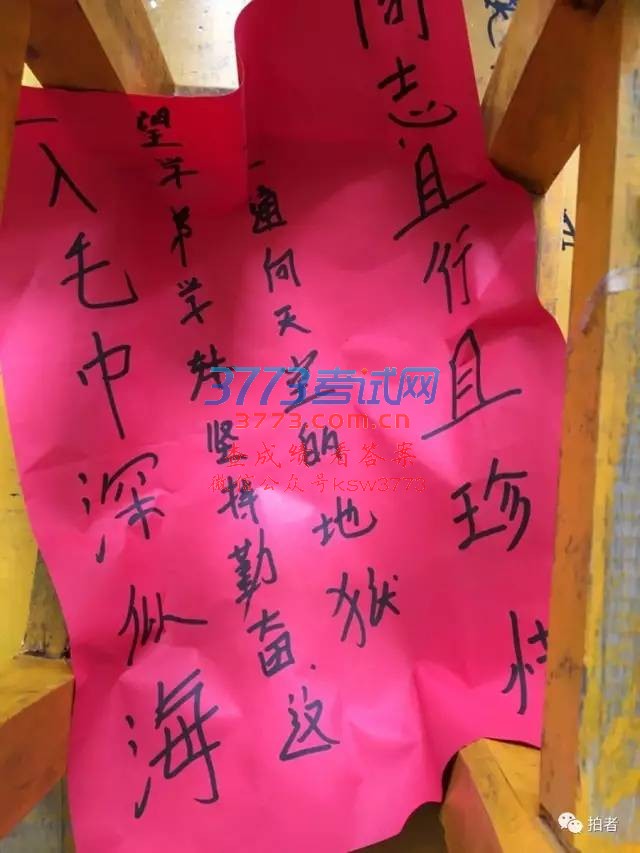 一入毛中深似海
望学弟学妹坚持勤奋、这
一通向天空的地狱
同志、且行且珍
3773考试网
3773.com.cn
查成绩 看答案
微信公众号ksw3773
拍者